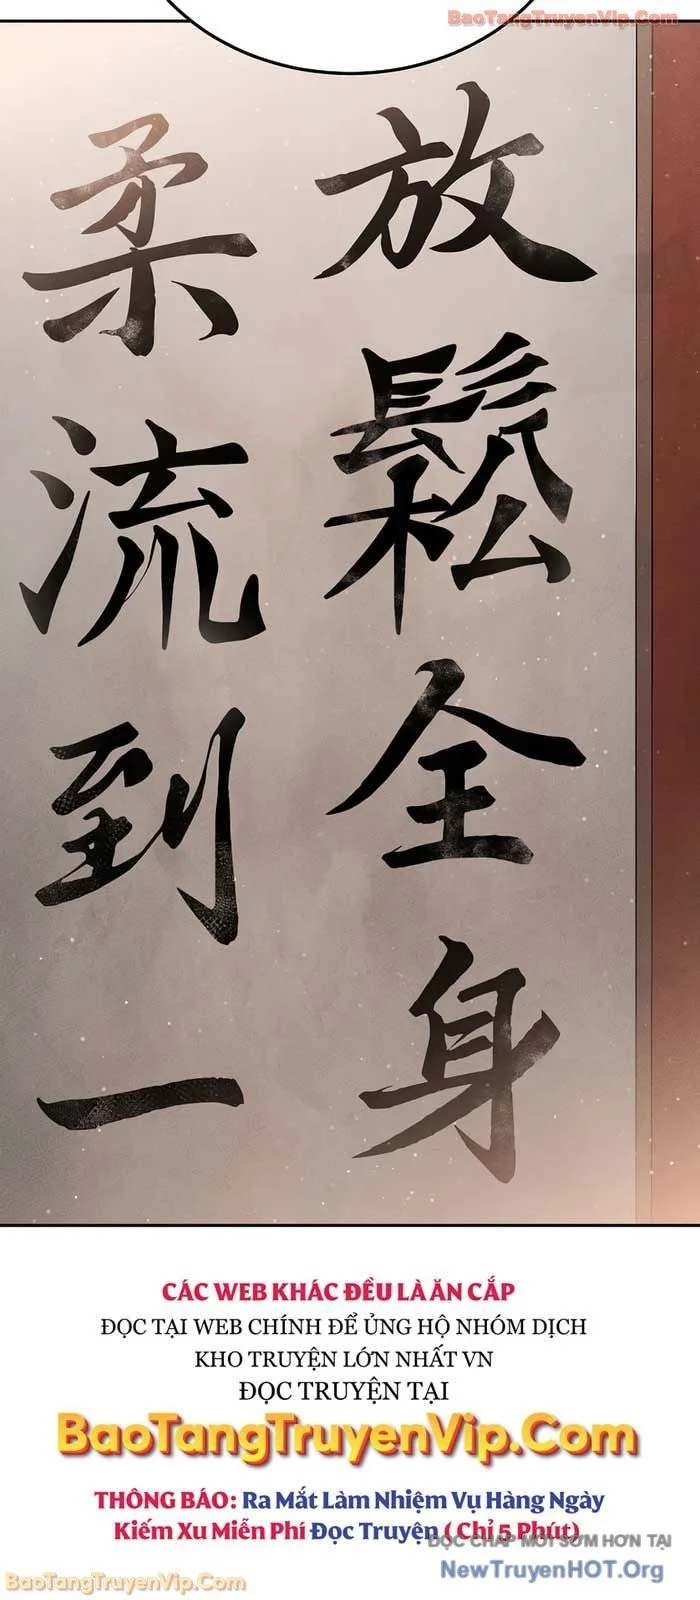 BaoTangTruyenVip.Com
放鬆全身
柔流到一
CÁC WEB KHÁC ĐỀU LÀ ĂN CẮP
ĐỌC TẠI WEB CHÍNH ĐỂ ỦNG HỘ NHÓM DỊCH
KHO TRUYỆN LỚN NHẤT VN
ĐỌC TRUYỆN TẠI
BaoTangTruyenVip.Com
THÔNG BÁO: Ra Mắt Làm Nhiệm Vụ Hàng Ngày
Kiếm Xu Miễn Phí Đọc Truyện ( Chỉ 5 Phút)
ĐỌC CHAP MỚI SỚM HƠN TẠI
NewTruyenHOT.Org
BaoTangTruyenVip.Com